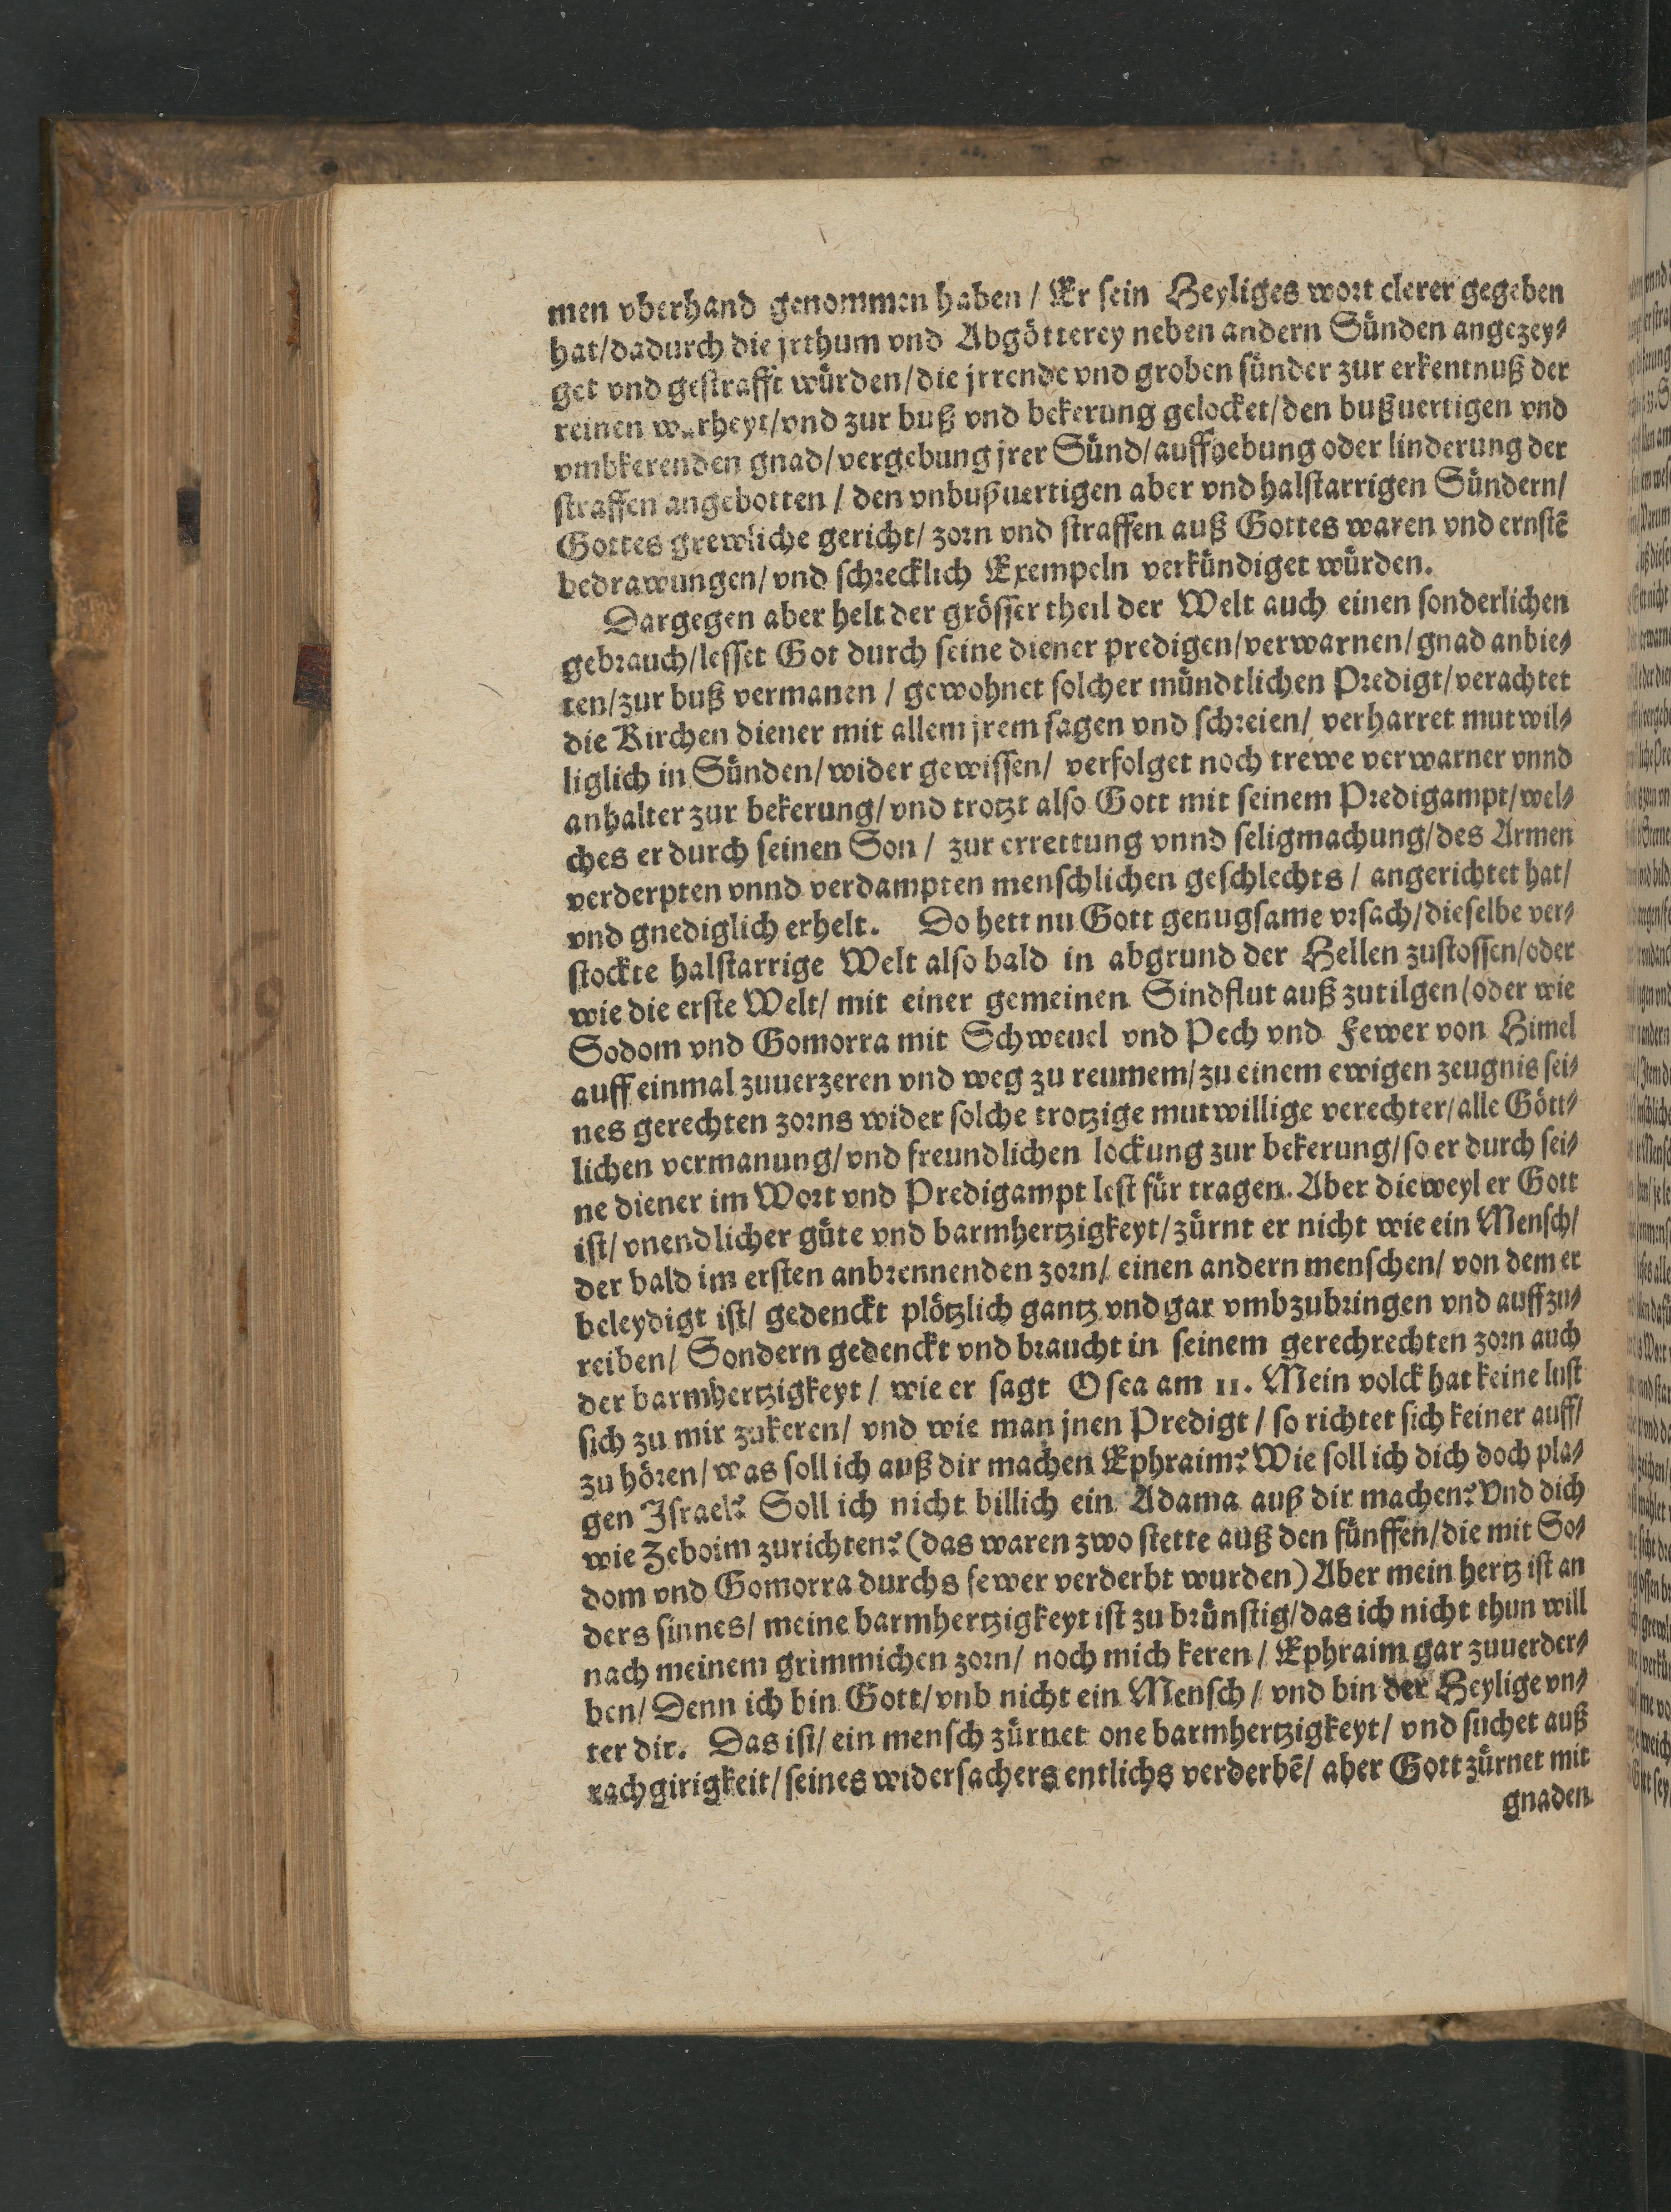 men vberhand genommen haben / Er sein Heyliges wort clerer gegeben
hat/dadurch die jrthum vnd Abgötterey neben andern Sünden angezey⸗
get vnd gestrafft würden/die jrrende vnd groben sünder zur erkentnuß der
reinen warheyt/vnd zur buß vnd bekerung gelocket/den bußuertigen vnd
vmbkerenden gnad/vergebung jrer Sünd/auffhebung oder linderung der
straffen angebotten / den vnbußuertigen aber vnd halstarrigen Sündern/
Gottes grewliche gericht/ zorn vnd straffen auß Gottes waren vnd ernstē
bedrawungen/ vnd schrecklich Exempeln verkündiget würden.
Dargegen aber helt der grösser theil der Welt auch einen sonderlichen
gebrauch/lesset Got durch seine diener predigen/verwarnen/gnad anbie⸗
ten/zur buß vermanen / gewohnet solcher mündtlichen Predigt/verachtet
die Kirchen diener mit allem jrem sagen vnd schreien/ verharret mutwil⸗
liglich in Sünden/wider gewissen/ verfolget noch trewe verwarner vnnd
anhalter zur bekerung/vnd trotzt also Gott mit seinem Predigampt/wel⸗
ches er durch seinen Son / zur errettung vnnd seligmachung/des Armen
verderpten vnnd verdampten menschlichen geschlechts / angerichtet hat/
vnd gnediglich erhelt. Do hett nu Gott genugsame vrsach/dieselbe ver⸗
stockte halstarrige Welt also bald in abgrund der Hellen zustossen/oder
wie die erste Welt/ mit einer gemeinen Sindflut auß zutilgen/oder wie
Sodom vnd Gomorra mit Schweuel vnd Pech vnd Fewer von Himel
auff einmal zuuerzeren vnd weg zu reumem/zu einem ewigen zeugnis sei⸗
nes gerechten zorns wider solche trotzige mutwillige verechter/alle Gött⸗
lichen vermanung/vnd freundlichen lockung zur bekerung/so er durch sei⸗
ne diener im Wort vnd Predigampt lest für tragen. Aber dieweyl er Gott
ist/ vnendlicher güte vnd barmhertzigkeyt/zürnt er nicht wie ein Mensch/
der bald im ersten anbrennenden zorn/ einen andern menschen/ von dem er
beleydigt ist/ gedenckt plötzlich gantz vnd gar vmbzubringen vnd auffzu⸗
reiben/ Sondern gedenckt vnd braucht in seinem gerechrechten zorn auch
der barmhertzigkeyt / wie er sagt Osea am 11. Mein volck hat keine lust
sich zu mir zukeren/ vnd wie man jnen Predigt / so richtet sich keiner auff/
zu hören/was soll ich auß dir machen Ephraim? Wie soll ich dich doch pla⸗
gen Israel? Soll ich nicht billich ein Adama auß dir machen? Vnd dich
wie Zeboim zurichten? (das waren zwo stette auß den fünffen/die mit So⸗
dom vnd Gomorra durchs fewer verderbt wurden) Aber mein hertz ist an
ders sinnes/ meine barmhertzigkeyt ist zu brünstig/das ich nicht thun will
nach meinem grimmichen zorn/ noch mich keren / Ephraim gar zuuerder⸗
ben/ Denn ich bin Gott/vnb nicht ein Mensch / vnd bin der Heylige vn⸗
ter dir. Das ist/ ein mensch zürnet one barmhertzigkeyt/ vnd suchet auß
rachgirigkeit/seines widersachers entlichs verderbē/ aber Gott zürnet mit
gnaden